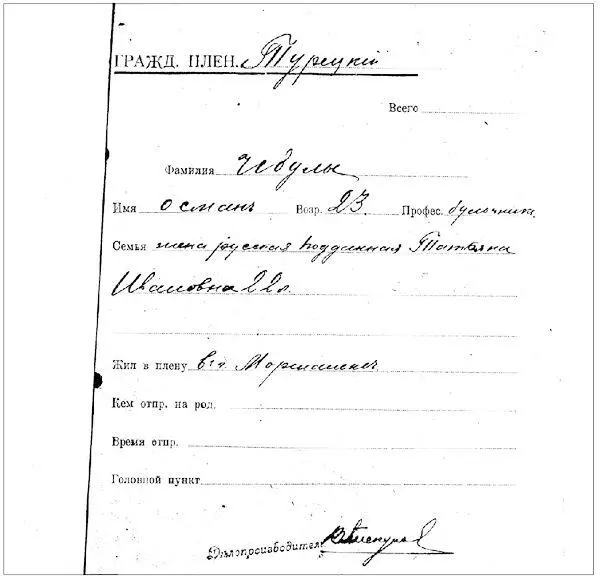 ГРАЖД. ПЛЕН. Турецкий
Всего
Фамилия Чебулы
Имя Османъ Возр. 23. Профес. булочникъ
Семья жена русская подданная Татьяна
Ивановна 22 л.
Жил в плену в г. Моршанскѣ
Кем отпр. на род.
Время отпр.
Головной пункт
Дѣлопроизводитель